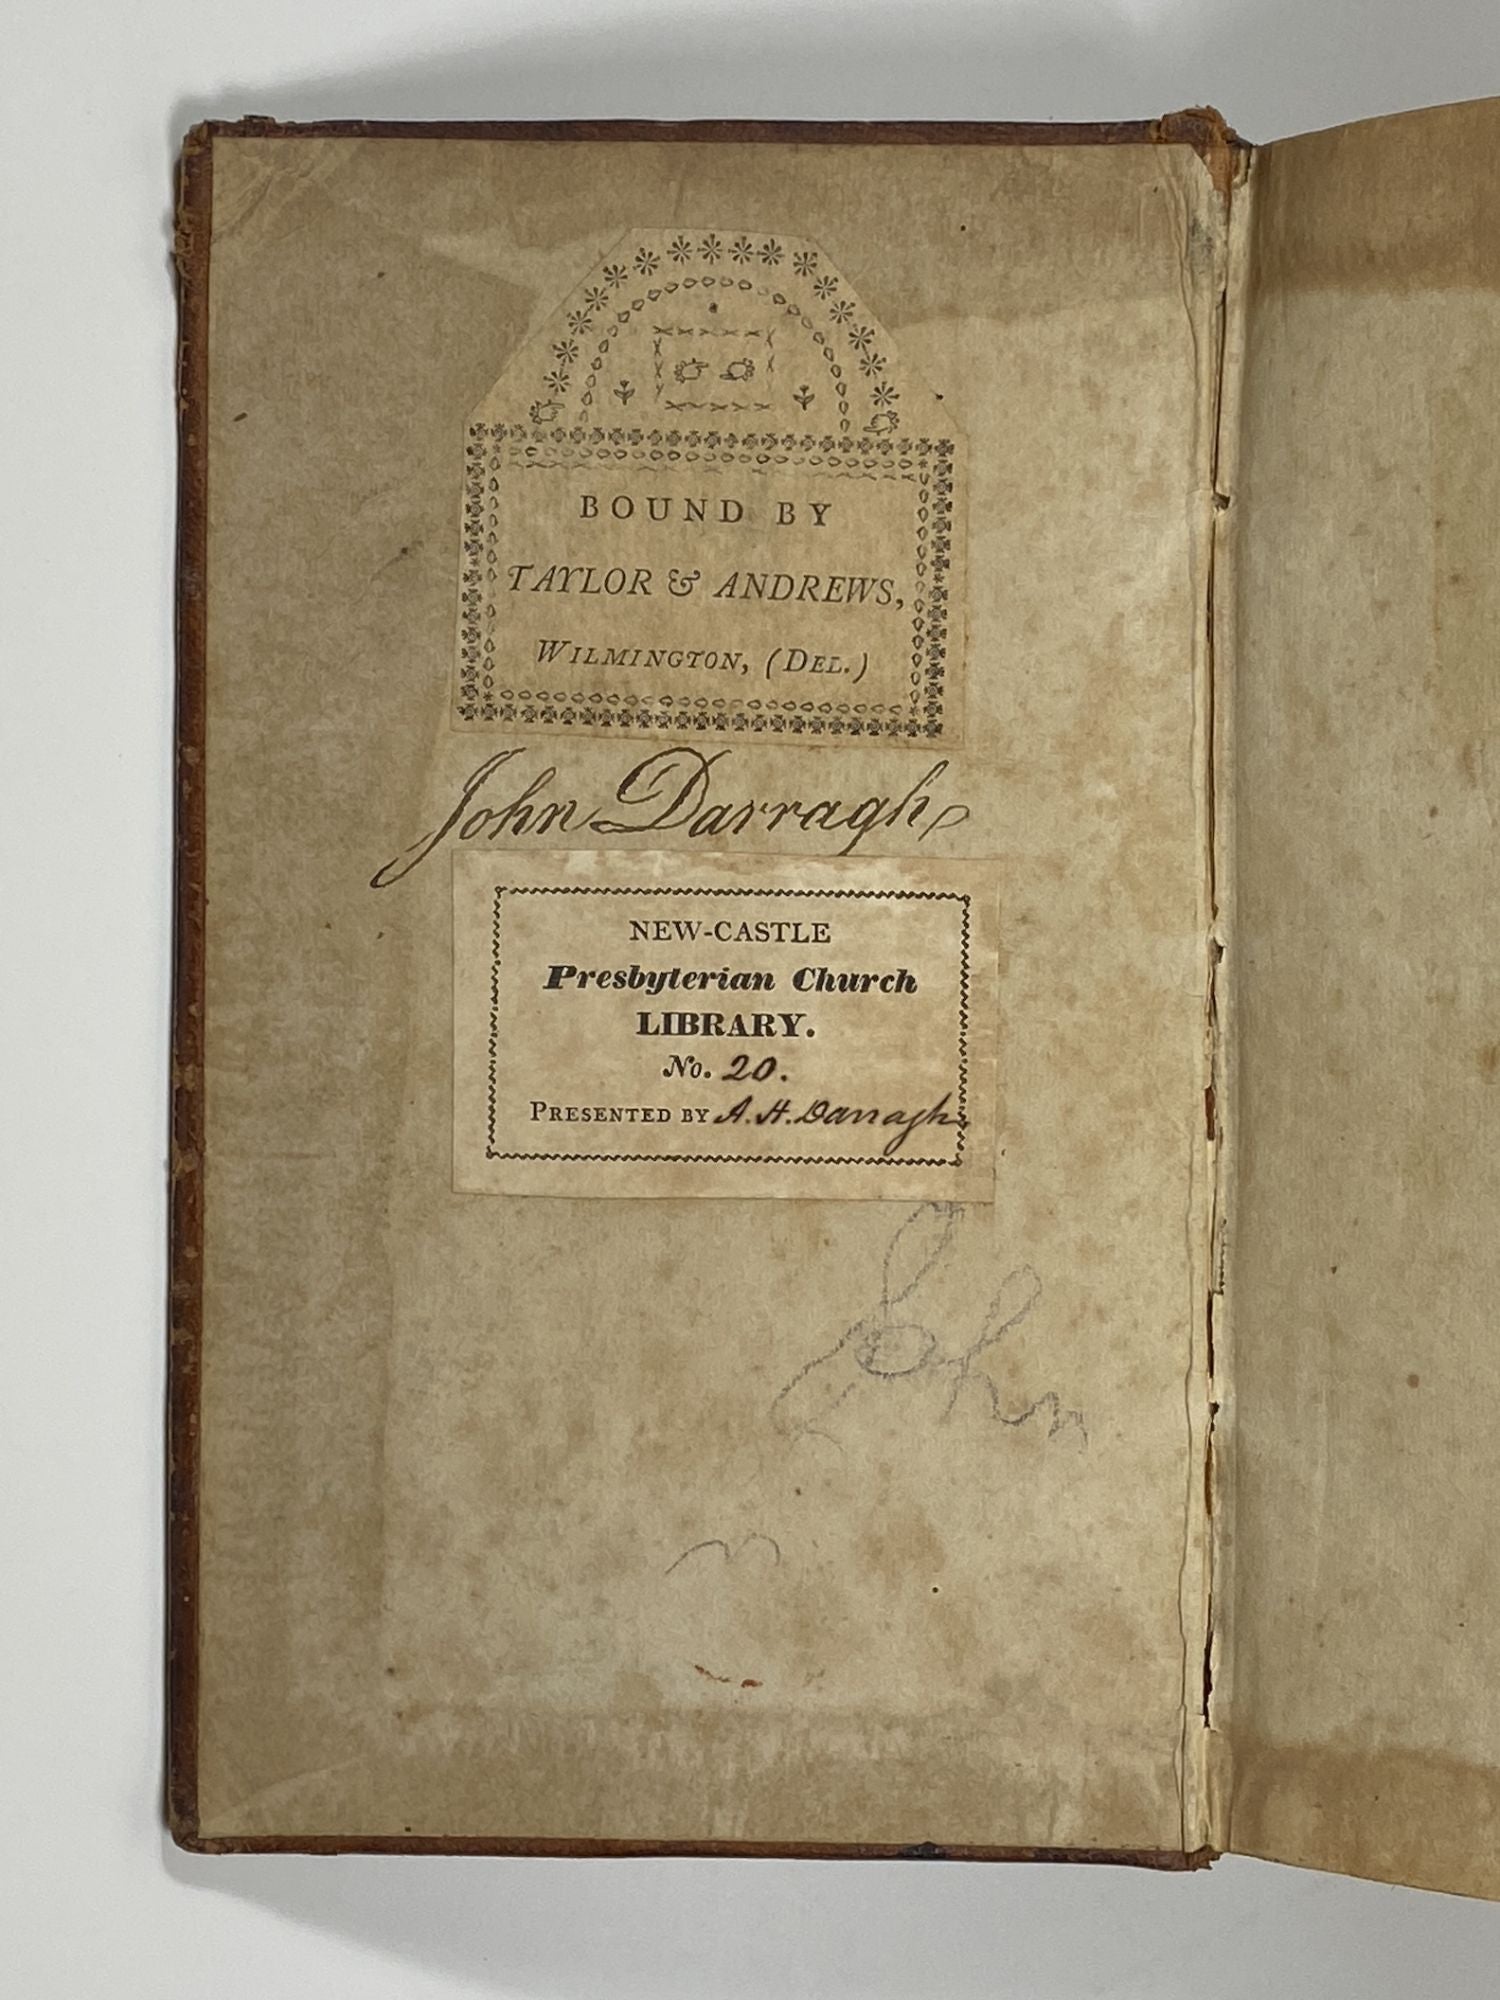 BOUND BY
TAYLOR & ANDREWS,
WILMINGTON, (DEL.)
John Darragh
NEW-CASTLE
Presbyterian Church
LIBRARY.
No. 20.
PRESENTED BY A. H. Darragh
John